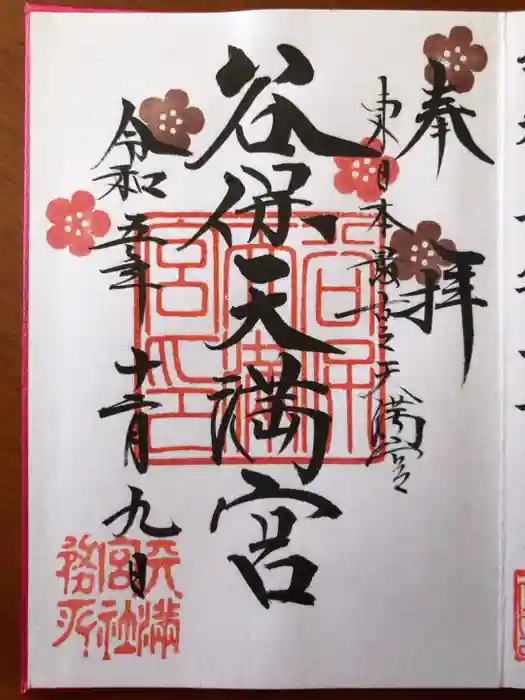 奉拝
東日本最古之天満宮
谷保天満宮
令和五年十二月九日
谷保天満宮印
天満宮社務所